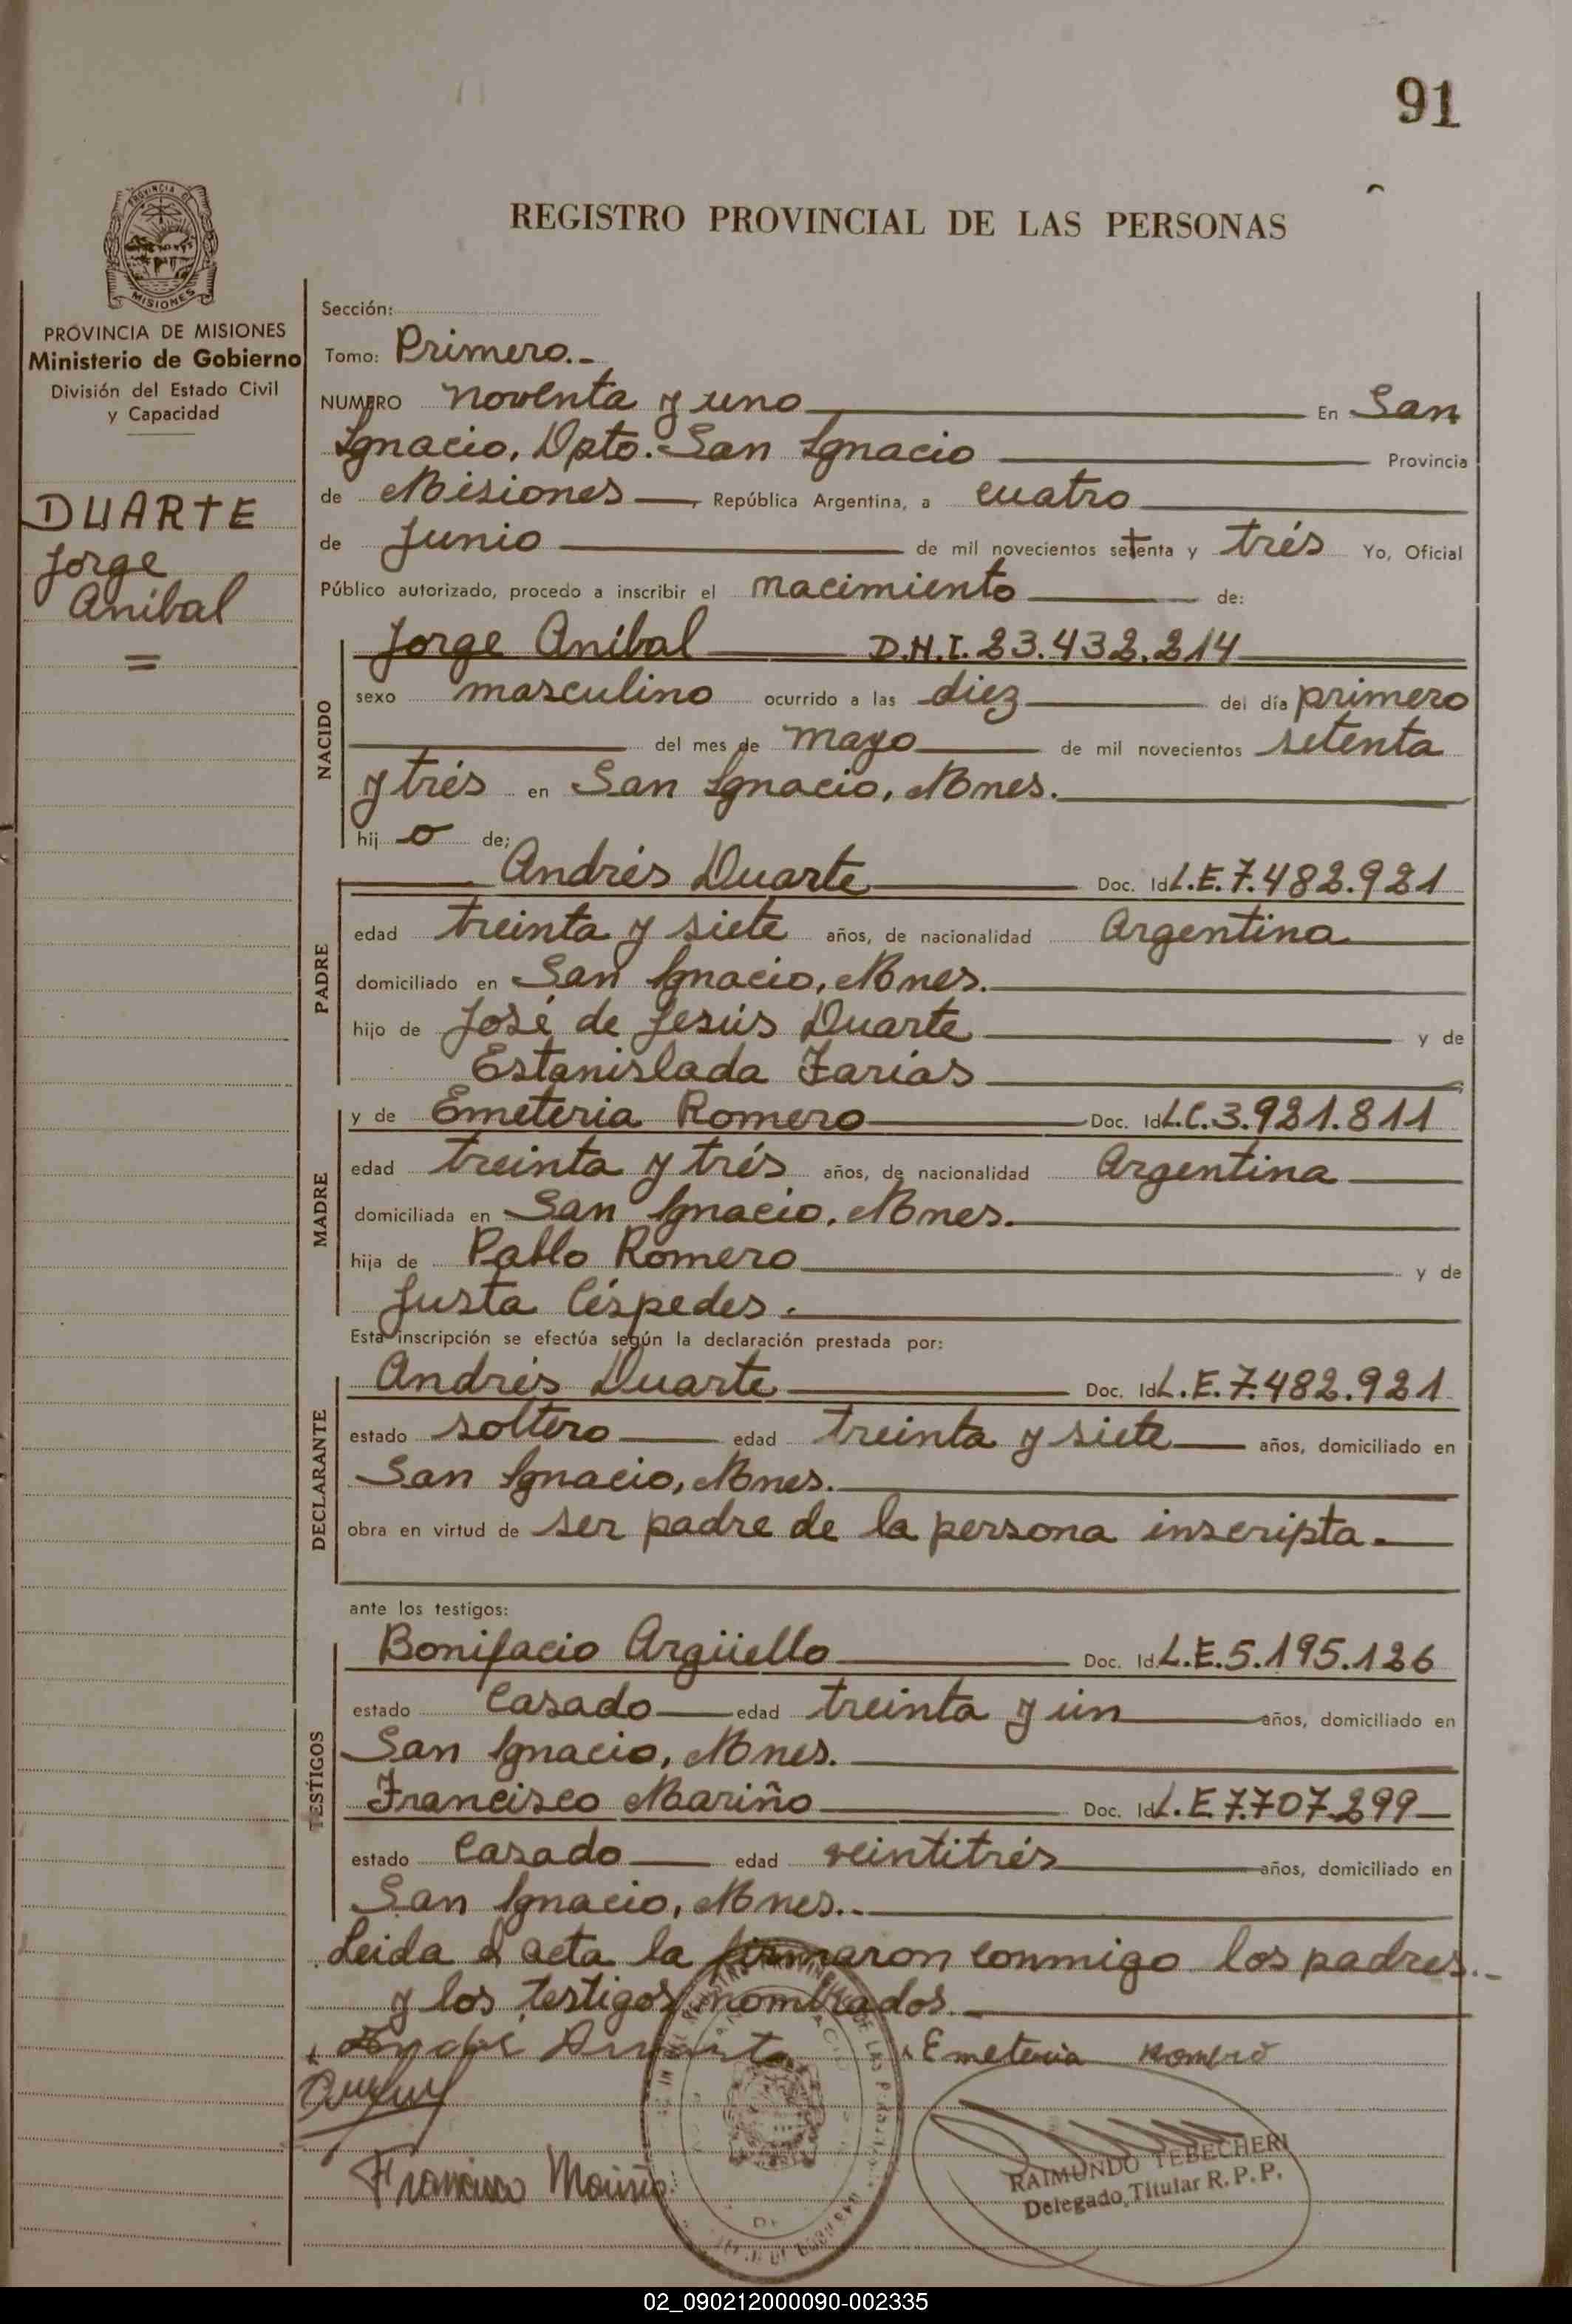 91
REGISTRO PROVINCIAL DE LAS PERSONAS
PROVINCIA DE
MISIONES
PROVINCIA DE MISIONES
Ministerio de Gobierno
División del Estado Civil
y Capacidad
DUARTE
Jorge
Aníbal
=
Sección:
Tomo: Primero.-
NUMERO noventa y uno En San
Ignacio, Dpto. San Ignacio Provincia
de Misiones, República Argentina, a cuatro
de Junio de mil novecientos setenta y trés Yo, Oficial
Público autorizado, procedo a inscribir el nacimiento de:
NACIDO
Jorge Aníbal D.N.I. 23.432.214
sexo masculino ocurrido a las diez del día primero
del mes de mayo de mil novecientos setenta
y trés en San Ignacio, Mnes.
hij o de;
PADRE
Andrés Duarte Doc. Id L.E. 7.482.921
edad treinta y siete años, de nacionalidad Argentina
domiciliado en San Ignacio, Mnes.
hijo de José de Jesús Duarte y de
Estanislada Farías
MADRE
y de Emeteria Romero Doc. Id L.C. 3.921.811
edad treinta y trés años, de nacionalidad Argentina
domiciliada en San Ignacio, Mnes.
hija de Pablo Romero y de
Justa Céspedes.
Esta inscripción se efectúa según la declaración prestada por:
DECLARANTE
Andrés Duarte Doc. Id L.E. 7.482.921
estado soltero edad treinta y siete años, domiciliado en
San Ignacio, Mnes.
obra en virtud de ser padre de la persona inscripta.
ante los testigos:
TESTIGOS
Bonifacio Argüello Doc. Id. L.E. 5.195.126
estado casado edad treinta y ún años, domiciliado en
San Ignacio, Mnes.
Francisco Mariño Doc. Id L.E 7.707.299
estado casado edad veintitrés años, domiciliado en
San Ignacio, Mnes..
Leida el acta la firmaron conmigo los padres.-
y los testigos nombrados.
Emeteria Romero
Francisco Mariño
RAIMUNDO TEBECHERI
Delegado Titular R. P. P.
02_090212000090-002335